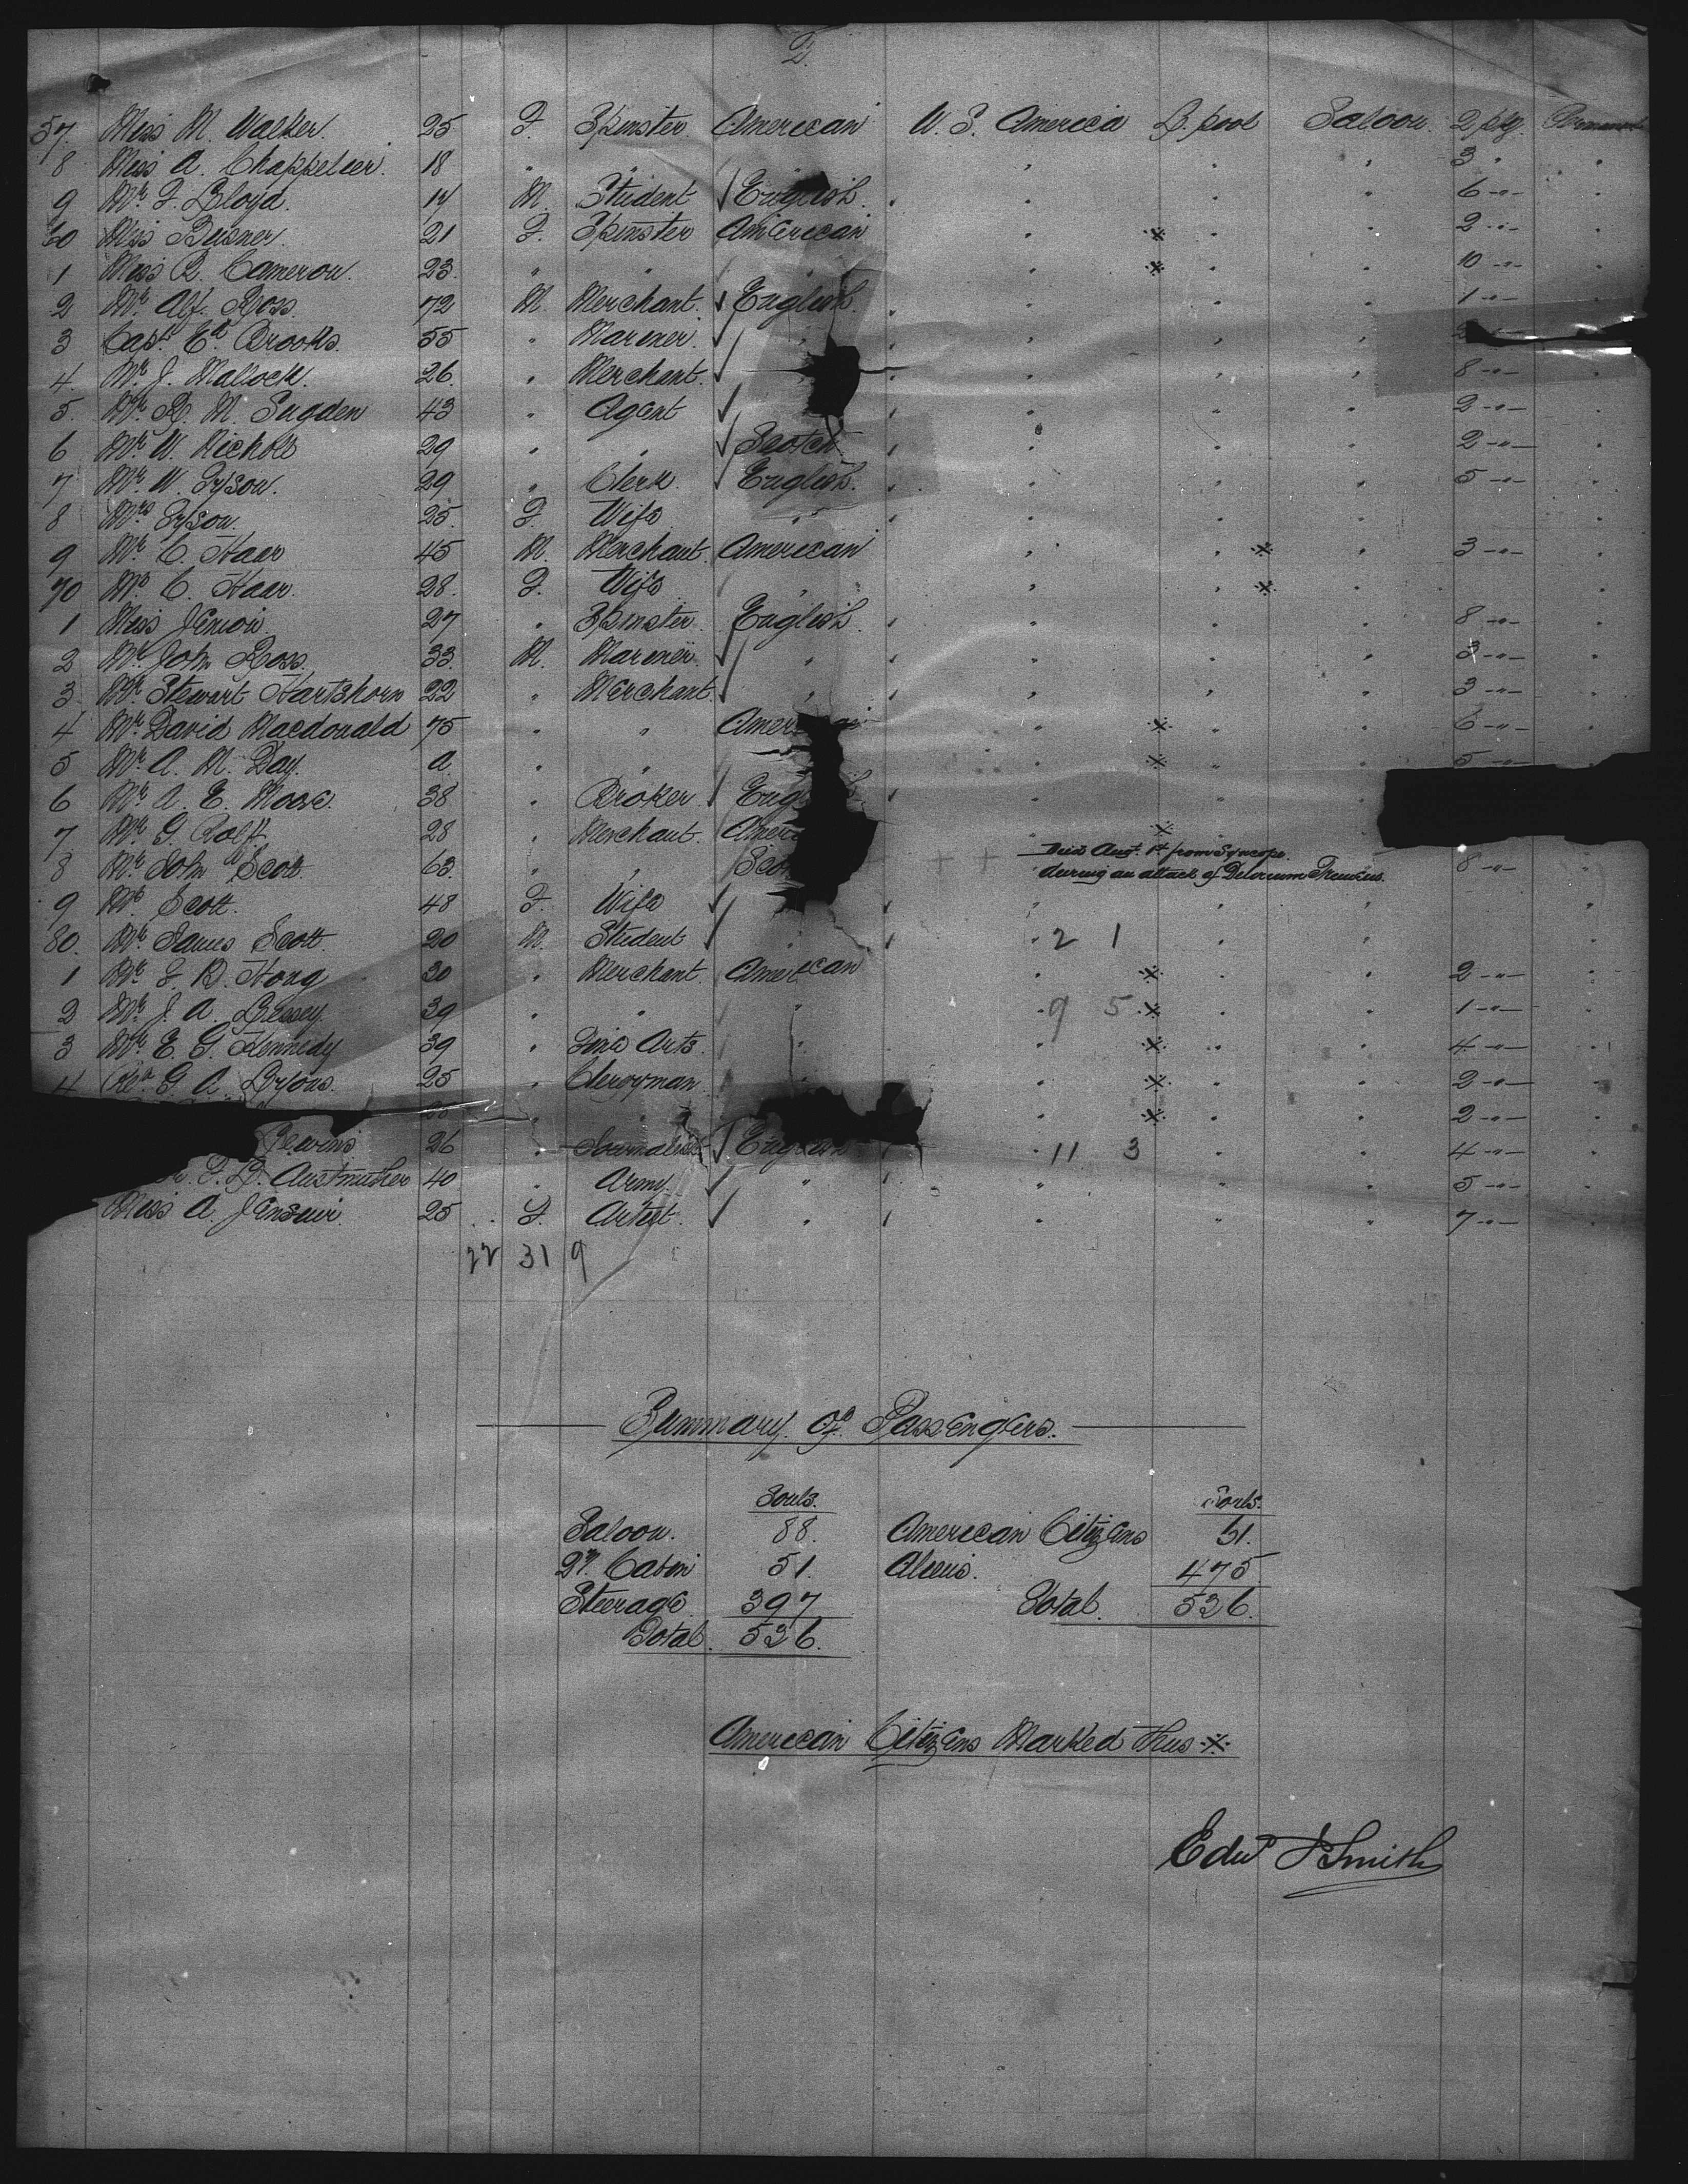 2.
57. Miss M. Walker. 25 F. Spinster. American U. S. America L.pool Saloon. 2 pkg.
8 Miss A. Chappelier. 18 " " " " " 3 "
9 Mr. F. Lloyd. 17 M. Student ✓ English. " " " 6 -"-
60 Miss Beisner. 21 F. Spinster American " ※ " " 2 -"-
1 Miss R. Cameron. 23. " " " " ※ " " 10 -"-
2 Mr. Alf. Ross. 72 M. Merchant. ✓ English. " " " 1 -"-
3 Capt. Ed. Brooks. 55 " Mariner. ✓ " " " "
4. Mr. J. Malock. 26. " Merchant. ✓ " " " 8 -"-
5. Mr. R. M. Sugden 43 " Agent ✓ " " " 2 -"-
6 Mr. W. Nicholls 29 " " ✓ Scotch " " " 2 -"-
7 Mr. W. Tyson. 29 " Clerk. ✓ English. " " " 5 -"-
8 Mrs. Tyson. 25. F. Wife " " " "
9 Mr. C. Haar 45 M. Merchant. American " " ※ " 3 -"-
70 Mrs. C. Haar. 28. F. Wife " " " ※ "
1 Miss 27 " Spinster. English. " " " 8 -"-
2 Mr. John Ross. 33. M. Mariner. ✓ " " " " 3 -"-
3 Mr. Stewart Hartshorn 22 " Merchant ✓ " " " " 3 -"-
4 Mr. David Macdonald 75 " " American " ※ " " 6 -"-
5 Mr. A. M. Day. a " " " ※ " " 5 -"-
6 Mr. A. E. Moore. 38 " Broker. ✓ Eng " "
7 Mr. G. Rolft 28 " Merchant. Amer " ※
8 Mr. John Scott. 63. " " Sco + + Died Augt. 1st from Syncope. 8 -"-
during an attack of Delirium Tremens.
9 Mrs. Scott. 48 F. Wife ✓ " " "
80. Mr. James Scott. 20 M. Student ✓ " " 2 1 " "
1 Mr. F. D. Hong 30 " Merchant. American " ※ " " 2 -"-
2 Mr. J. A. 39 " " " " 9 5 ※ " " 1 -"-
3 Mr. E. G. Kennedy 39 " Fine Arts. " " ※ " " 4 -"-
4 Rev. G. A. Lyons. 25 " Clergyman. " ※ " " 2 -"-
28 " " ※ " " 2 -"-
26 " Journalist ✓ English " 11 3 " " 4 -"-
F. L. Austruther 40 " Army. ✓ " " " " 5 -"-
Miss A. 25 F. Artist. ✓ " " " " 7 -"-
22 31 9
Summary of Passengers.
Souls. Souls.
Saloon. 88. American Citizens 61.
2n. Cabin 51. Aliens. 475
Steerage. 397 Total. 536.
Total. 536.
American Citizens Marked thus ※
Edwd J Smith